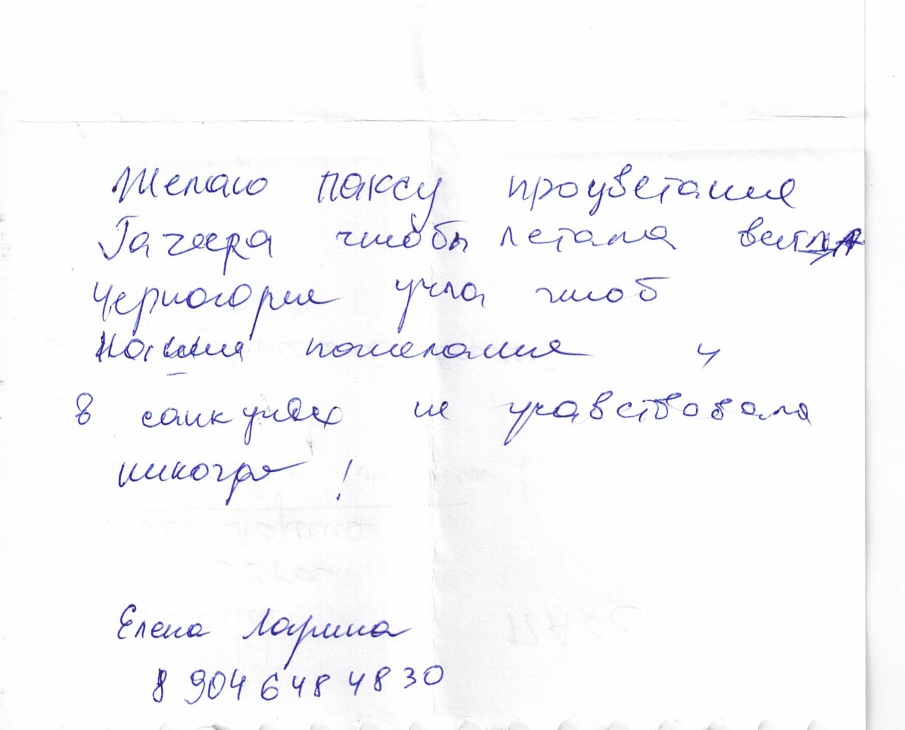 Желаю паксу процветания
Гагера чтобы летала всегда
Черногория учла чтоб
Наши пожелания и
в санкциях не учавствовала
никогда!
Елена Ларина
8 904 648 48 30